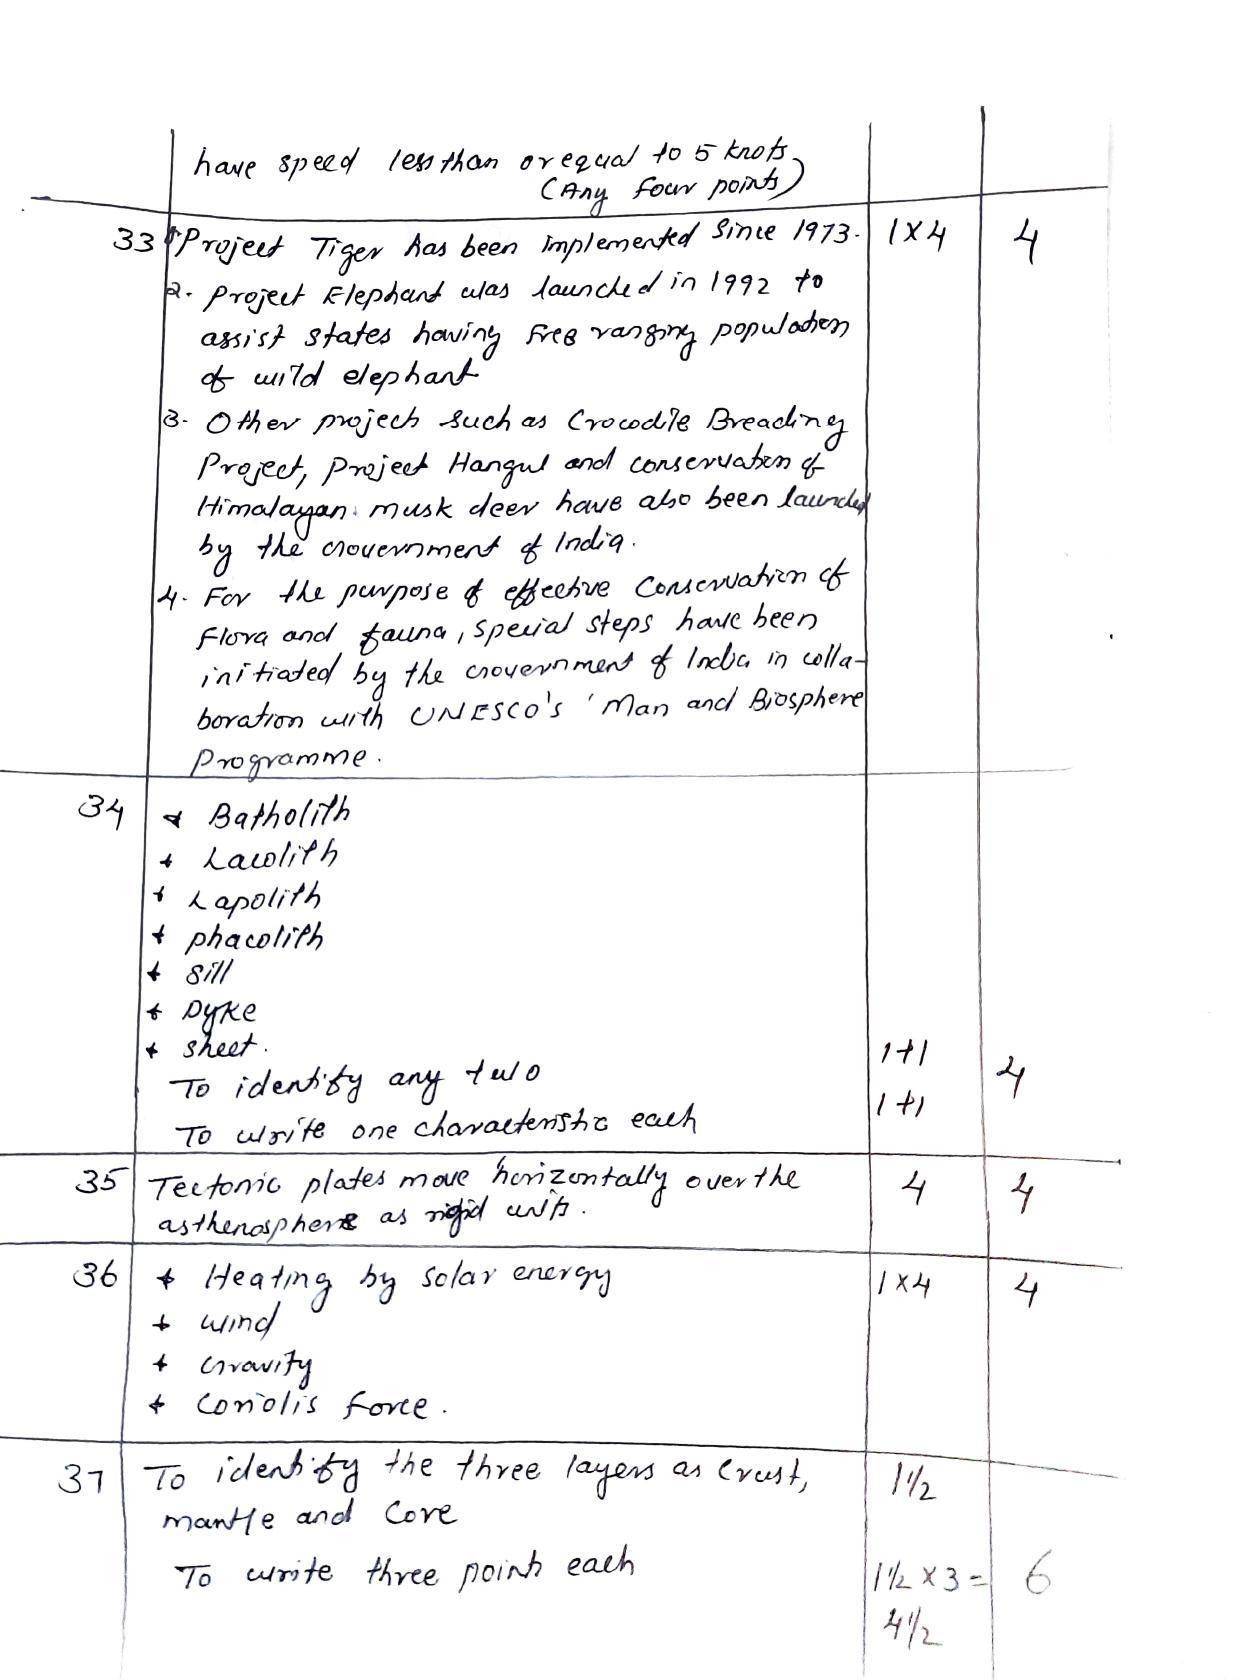 have speed less than or equal to 5 knots
(Any four points)
33 1. Project Tiger has been implemented Since 1973. 1×4 4
2. Project Elephant was launched in 1992 to
assist states having free ranging population
of wild elephant
3. Other project such as Crocodile Breading
Project, Project Hangul and conservation of
Himalayan musk deer have also been launched
by the Government of India.
4. For the purpose of effective Conservation of
Flora and fauna, Special steps have been
initiated by the Government of India in colla-
boration with UNESCO's 'Man and Biosphere
Programme.
34 * Batholith
* Lacolith
* Lapolith
* phacolith
* Sill
* Dyke
* Sheet.
To identify any two 1+1 4
To write one characteristic each 1+1
35 Tectonic plates move horizontally over the 4 4
asthenosphere as rigid units.
36 * Heating by solar energy 1×4 4
* wind
* Gravity
* Coriolis force.
37 To identify the three layers as Crust, 1 1/2
mantle and Core
To write three points each 1 1/2 × 3 = 6
4 1/2